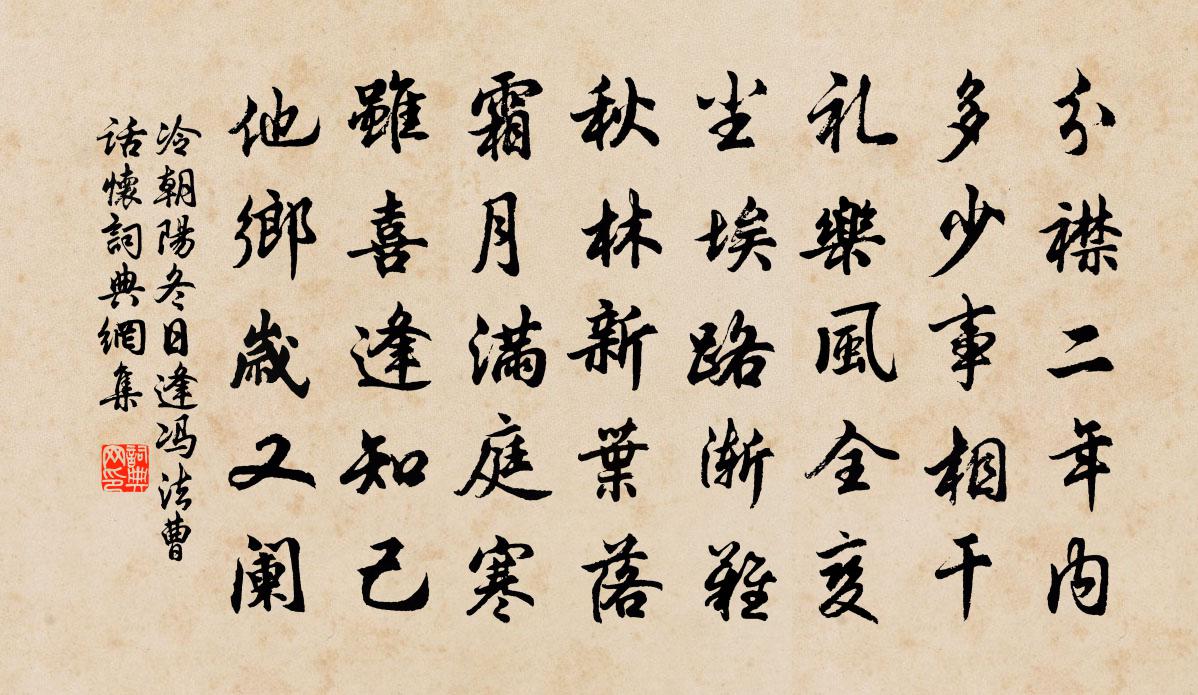 分襟二年内
多少事相干
礼樂風全变
尘埃路渐難
秋林新葉落
霜月满庭寒
雖喜逢知己
他鄉歳又阑
冷朝陽冬日逢冯法曹
话懷詞典網集
詞典
网印